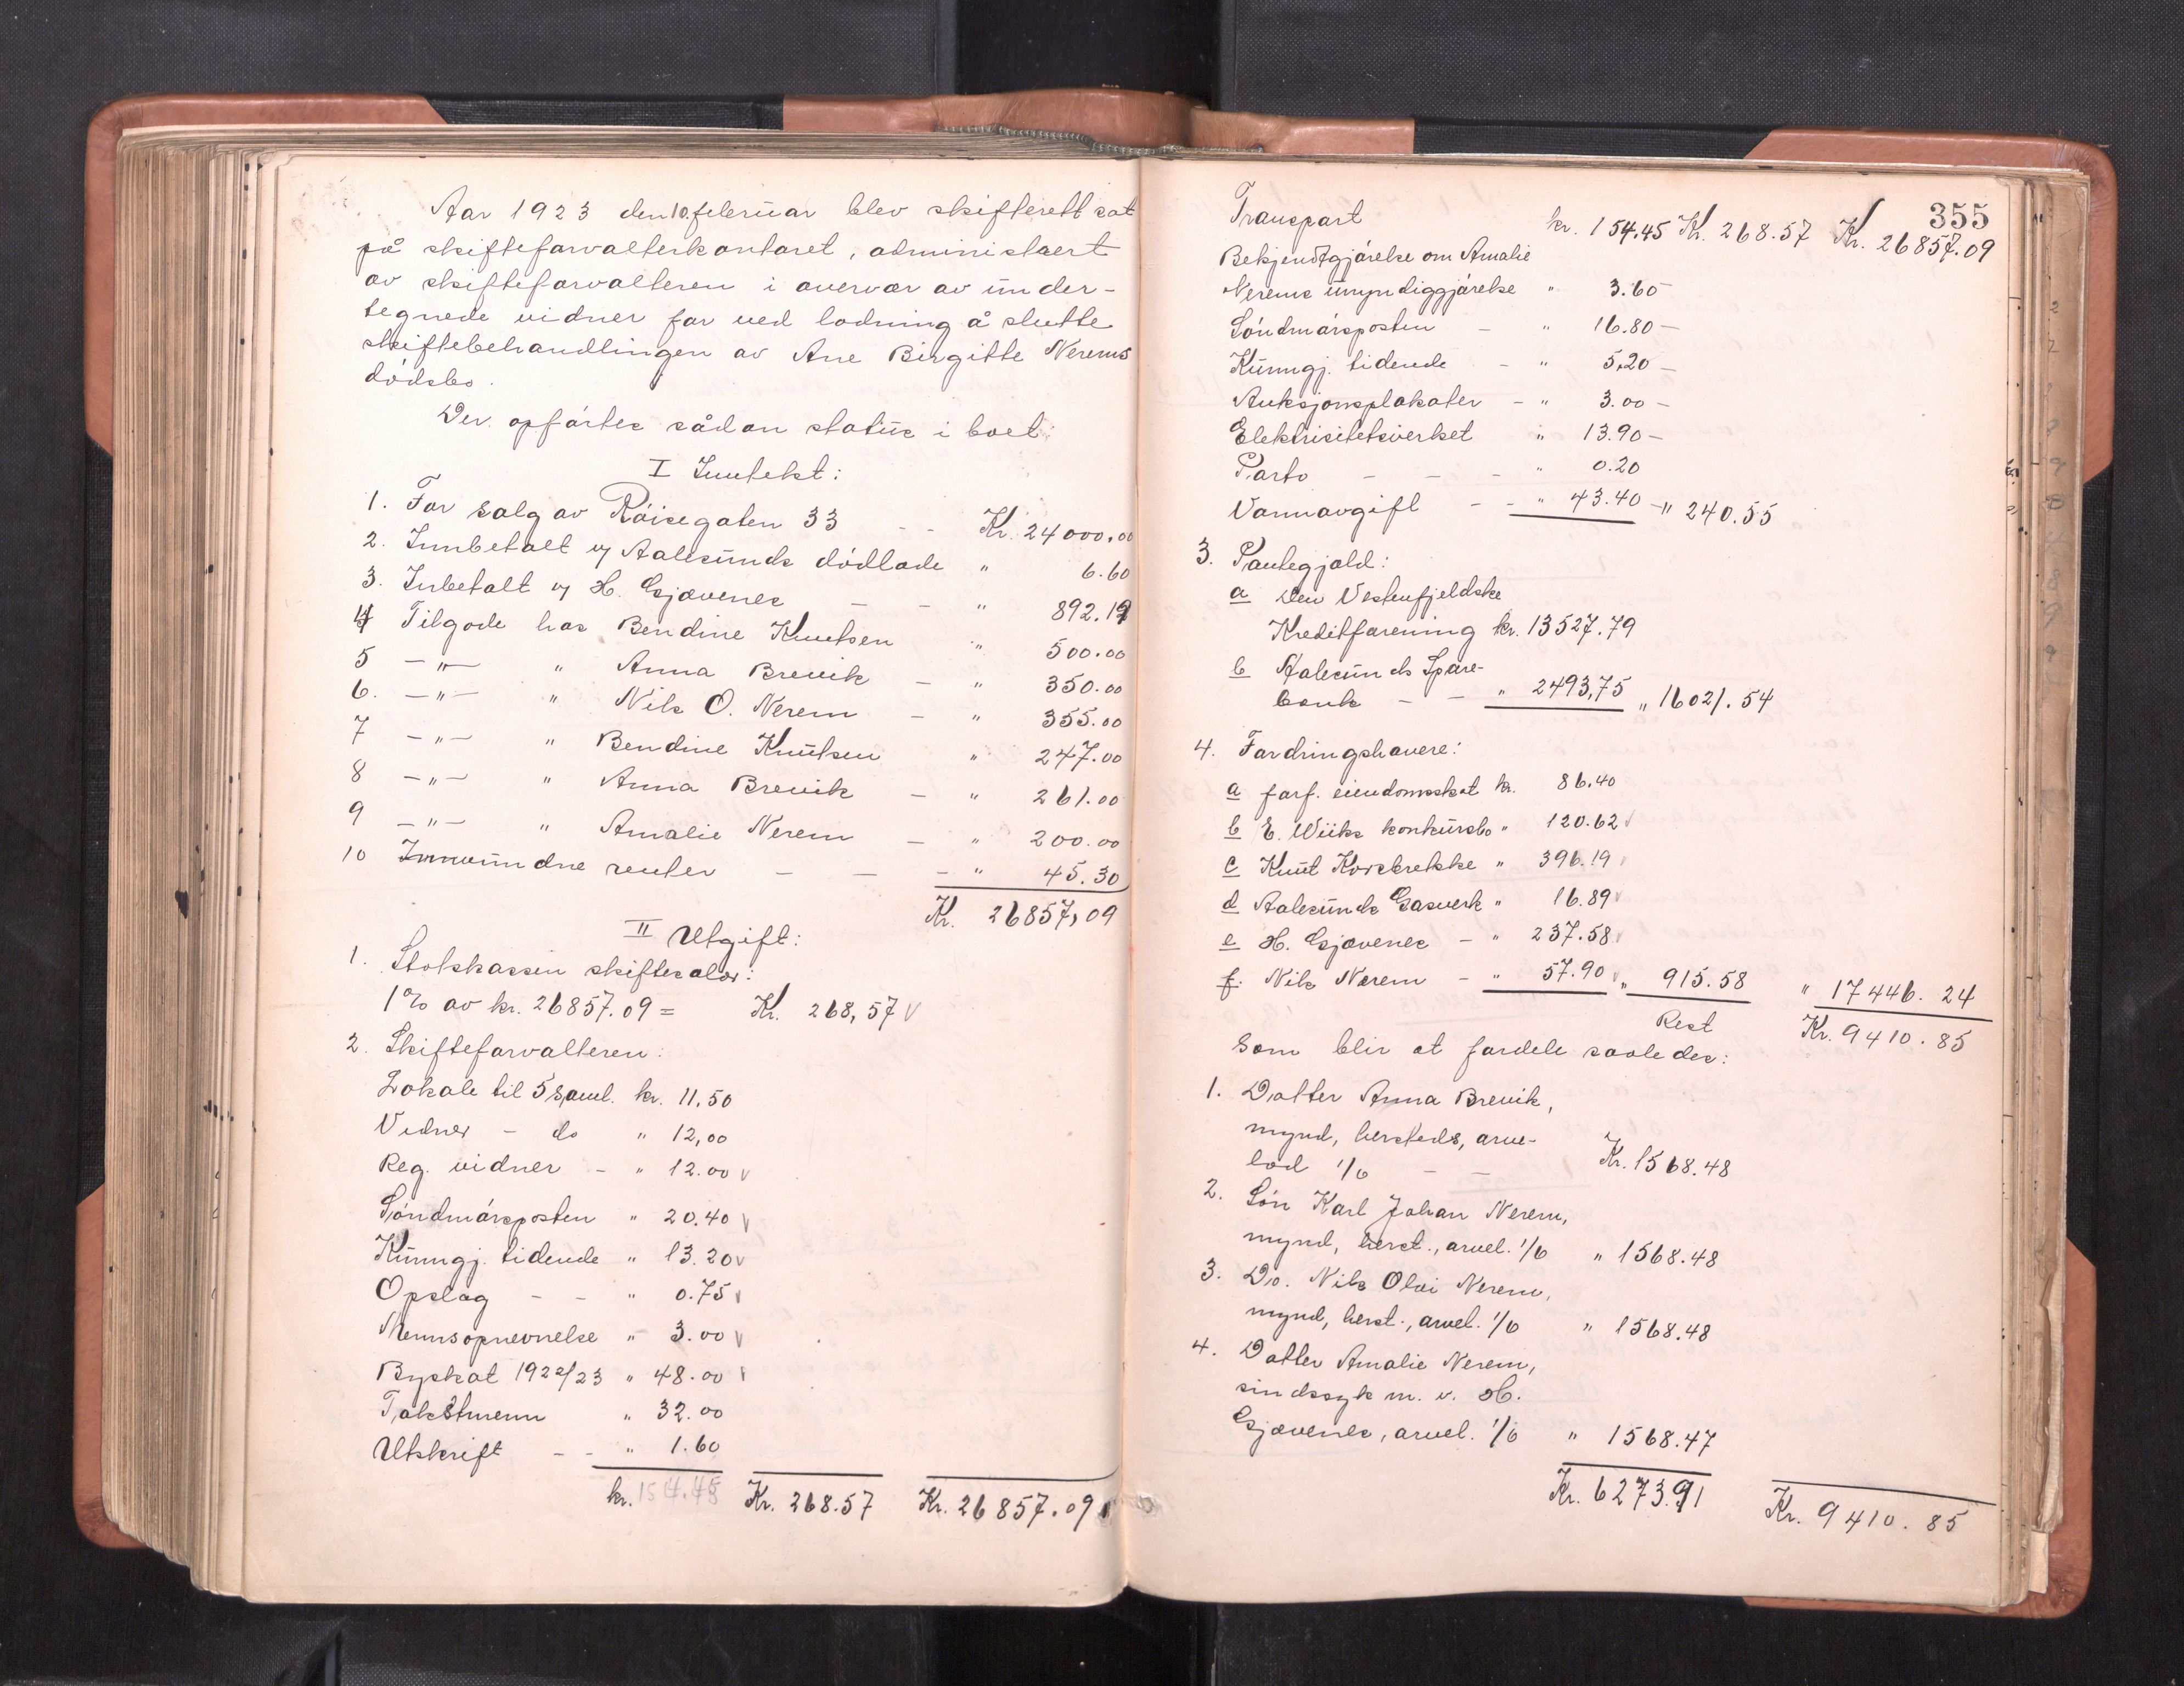 Aar 1923 den 10. februar blev skifterett sat
på skifteforvalterkontoret, administrert
av skifteforvalteren i overvær av under-
tegnede vidner for ved lodning å slutte
skiftebehandlingen av Ane Birgitte Nerems
dödsbo.
Der opførtes sådan status i boet:
I Inntekt:
1. For salg av Röisegaten 33 - - Kr. 24000.00
2. Innbetalt v/ Aalesunds dödlade " 6.60
3. Inbetalt v/ H. Gjævenes - - " 892.19
4 Tilgode hos Bendine Knutsen " 500.00
5 -"- " Anna Brevik - " 350.00
6. -"- " Nils O. Nerem - " 355.00
7 -"- " Bendine Knutsen " 247.00
8 -"- " Anna Brevik - " 261.00
9 -"- " Amalie Nerem - " 200.00
10 Innvundne renter - - - " 45.30
Kr. 26857,09
II Utgift:
1. Statskassen skiftesalær:
1% av kr. 26857.09 = Kr. 268,57
2. Skifteforvalteren:
Lokale til 5 saml. kr. 11,50
Vidner - do " 12,00
Reg. vidner - " 12.00
Söndmörsposten " 20.40
Kunngj. tidende " 13.20
Opslag - - " 0.75
Mennsopnevnelse " 3.00
Byskat 1922/23 " 48.00
Takstmenn " 32.00
Utskrift - - " 1.60
kr. 154.45 Kr. 268.57 Kr. 26857.09
355
Transport kr. 154.45 Kr. 268.57 Kr. 26857.09
Bekjendtgjörelse om Amalie
Nerems umyndiggjörelse " 3.60
Söndmörsposten - " 16.80 -
Kunngj. tidende - " 5,20 -
Auksjonsplakater - " 3.00 -
Elektrisitetsverket " 13.90 -
Porto - - - " 0.20
Vannavgift - - " 43.40 - " 240.55
3. Pantegjold:
a Den Vestenfjeldske
Kreditforening kr. 13527.79
b Aalesunds Spare-
bank - - " 2493,75 " 16021.54
4. Fordringshavere:
a forf. eiendomsskat kr. 86.40
b E. Wiiks konkursbo " 120.62
c Knut Korsbrekke " 396.19
d Aalesunds Gasverk " 16.89
e H. Gjævenes - " 237.58
f. Nils Nerem - " 57.90 " 915.58 " 17446.24
Rest Kr. 9410.85
Som blir at fordele saaledes:
1. Datter Anna Brevik,
mynd, hersteds, arve-
lod 1/6 - - Kr. 1568.48
2. Sön Karl Johan Nerem,
mynd, herst., arvel. 1/6 " 1568.48
3. Do. Nils Olai Nerem,
mynd, herst., arvel. 1/6 " 1568.48
4. Datter Amalie Nerem,
sindssyk m. v. H.
Gjævenes, arvel. 1/6 " 1568.47
Kr. 6273.91 Kr. 9410.85